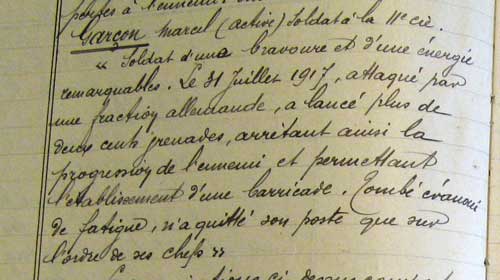 pertes à l'ennemi
Garçon Marcel (active) Soldat à la 11e cie.
"Soldat d'une bravoure et d'une énergie
remarquables. Le 31 Juillet 1917, attaqué par
une fraction allemande, a lancé plus de
deux cents grenades, arrêtant ainsi la
progression de l'ennemi et permettant
l'établissement d'une barricade. Tombé évanoui
de fatigue, n'a quitté son poste que sur
l'ordre de ses chefs "